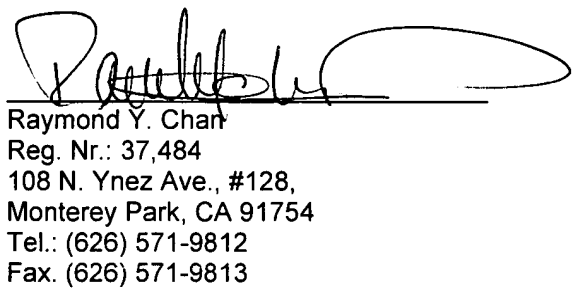 Raymond Y. Chan
Reg. Nr.: 37,484
108 N. Ynez Ave., #128,
Monterey Park, CA 91754
Tel.: (626) 571-9812
Fax. (626) 571-9813